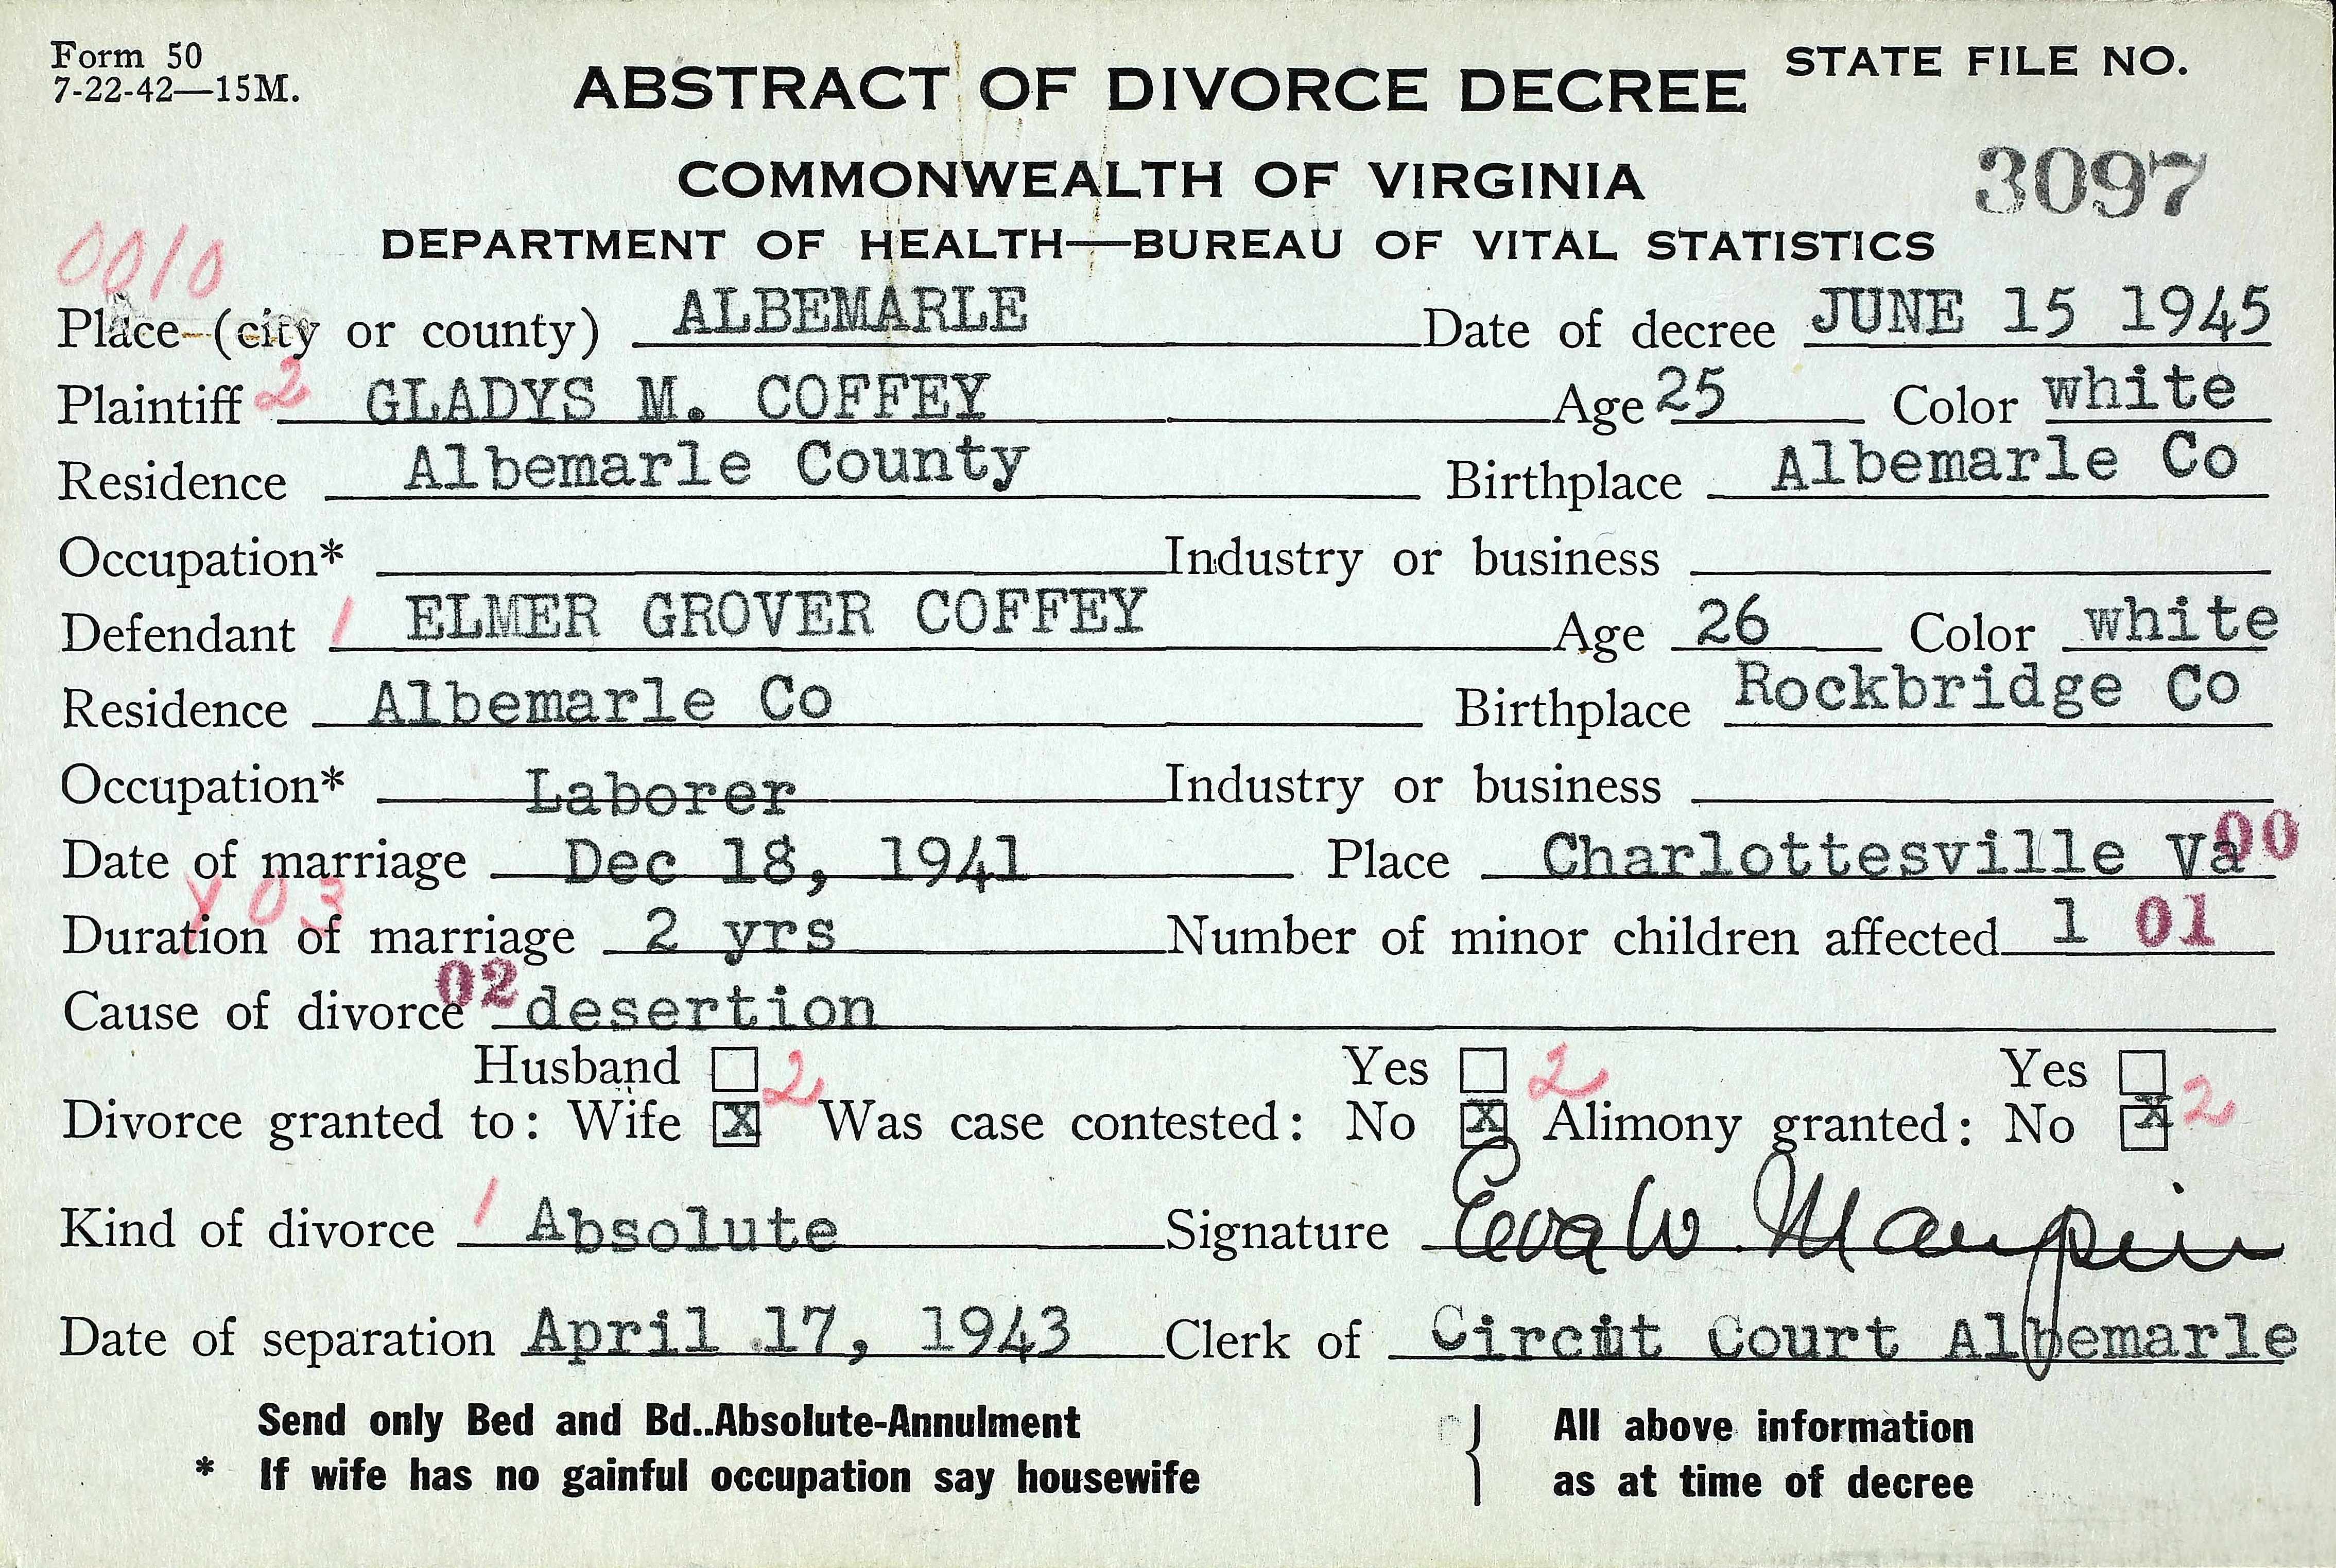 Form 50
7-22-42—15M.
STATE FILE NO.
ABSTRACT OF DIVORCE DECREE
COMMONWEALTH OF VIRGINIA
3097
DEPARTMENT OF HEALTH—BUREAU OF VITAL STATISTICS
0010
Place (city or county) ALBEMARLE Date of decree JUNE 15 1945
Plaintiff 2 GLADYS M. COFFEY Age 25 Color white
Residence Albemarle County Birthplace Albemarle Co
Occupation* Industry or business
Defendant 1 ELMER GROVER COFFEY Age 26 Color white
Residence Albemarle Co Birthplace Rockbridge Co
Occupation* Laborer Industry or business
Date of marriage Dec 18, 1941 Place Charlottesville Va 00
Y 03
Duration of marriage 2 yrs Number of minor children affected 1 01
Cause of divorce 02 desertion
Husband 2 Yes 2 Yes
Divorce granted to: Wife X Was case contested: No X Alimony granted: No X 2
Kind of divorce 1 Absolute Signature Eva W. Maupin
Date of separation April 17, 1943 Clerk of Circuit Court Albemarle
Send only Bed and Bd..Absolute-Annulment
* If wife has no gainful occupation say housewife
All above information
as at time of decree